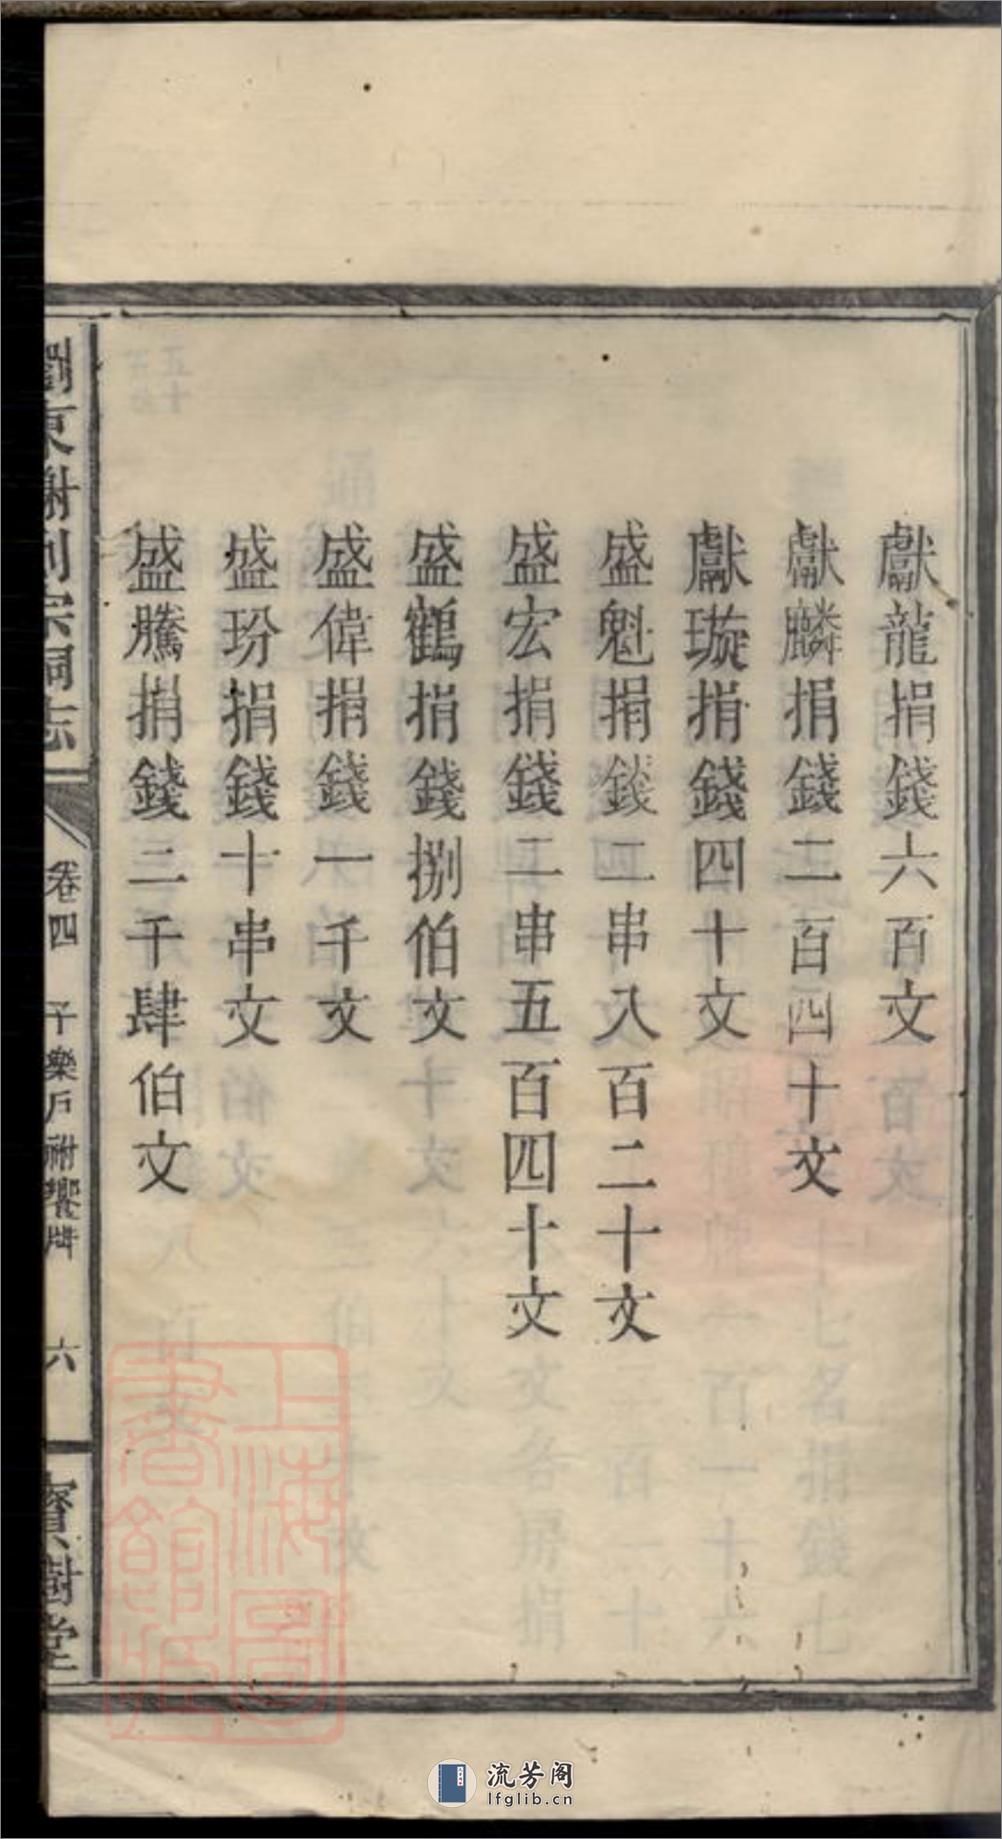 獻龍捐錢六百文
獻麟捐錢二百四十文
獻璇捐錢四十文
盛魁捐錢二串八百二十文
盛宏捐錢二串五百四十文
盛鶴捐錢捌伯文
盛偉捐錢一千文
盛玢捐錢十串文
盛騰捐錢二千肆伯文
瀏東謝氏宗祠志
卷四
子樂戶祔饗牌
六
寶樹堂
上海圖書館藏
流芳阁
lfglib.cn